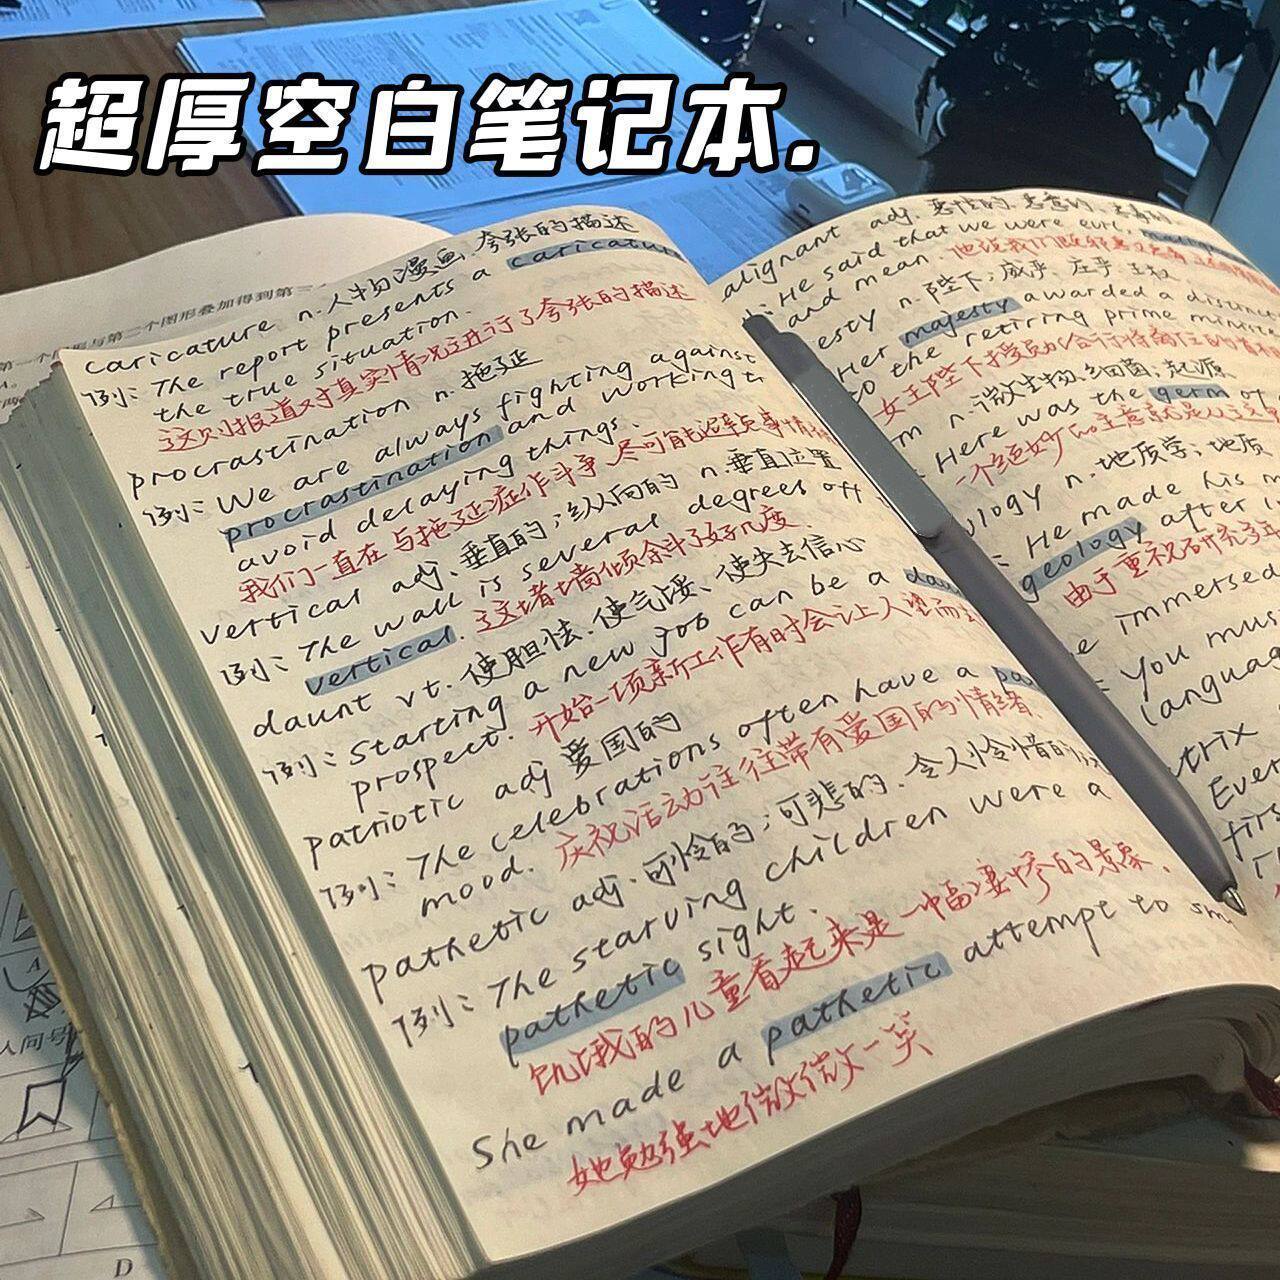 超厚空白笔记本.
第一个图形与第二个图形叠加得到第三
caricature n.人物漫画.夸张的描述
例: The report presents a caricatur
the true situation.
这则报道对真实情况进行了夸张的描述
procrastination n.拖延
例: We are always fighting against
procrastination and working t
avoid delaying things.
我们一直在与拖延症作斗争 尽可能
vertical adj.垂直的;纵向的 n.垂直位置
例: The wall is several degrees off
vertical. 这堵墙倾斜了好几度.
daunt vt.使胆怯.使气馁、使失去信心
例: Starting a new job can be a dau
prospect. 开始一项新工作有时会让人望而
patriotic adj 爱国的
例: The celebrations often have a pa
mood. 庆祝活动往往带有爱国的情绪.
pathetic adj.可怜的;可悲的.令人怜惜的
例: The starving children were a
pathetic sight.
饥饿的儿童看起来是一幅凄惨的景象.
She made a pathetic attempt to sm
她勉强地微微一笑
alignant adj.恶性的.恶意的、
: He said that we were evil,
and mean. 他说我们
esty n.陛下;威严、庄严 王权
Her majesty awarded a distinct
to the retiring prime minist
女王陛下授勋给行将离任的首
m n.微生物.细菌;起源
Here was the germ of
一个绝妙的主意就是从这里
ology n.地质学;地质
: He made his m
geology after
由于重视研究
e immersed
: You mus
languag
trix
Ever
firs
人问号
A
D